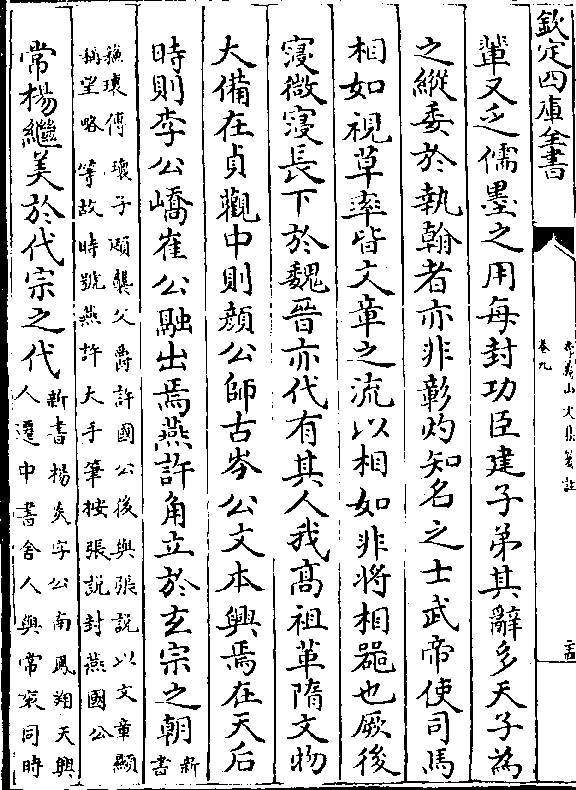 欽定四庫全書
李義山文集箋註
卷九
輩又乏儒墨之用每封功臣建子弟其辭多天子為
之縱委於執翰者亦非彰灼知名之士武帝使司馬
相如視草率皆文章之流以相如非將相器也厥後
寖微寖長下於魏晉亦代有其人我高祖革隋文物
大備在貞觀中則顔公師古岑公文本興焉在天后
時則李公嶠崔公融出焉燕許角立於玄宗之朝新書
蘇瓌傳瓌子頲襲父爵許國公後與張說以文章顯
稱望略等故時號燕許大手筆按張說封燕國公
常楊繼美於代宗之代新書楊炎字公南鳳翔天興
人遷中書舍人與常袞同時